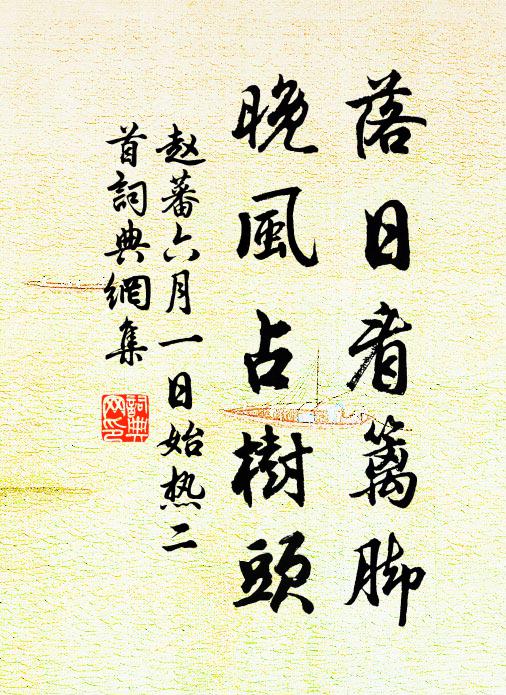 落日看籬脚
晚風占樹頭
赵蕃六月一日始热二
首詞典網集
詞典网印